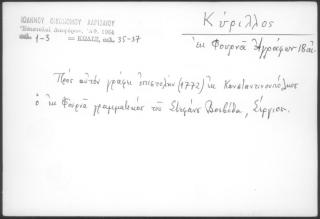 ΙΩΑΝΝΟΥ ΟΙΚΟΝΟΜΟΥ ΛΑΡΙΣΑΙΟΥ
Ἐπιστολαὶ Διαφόρων, Ἀθ. 1964
1-3 = ΚΩΔΙΞ, 35-37
Κύριλλος
ἐκ Φουρνᾶ Ἀγράφων 18 αἰ.
Πρὸς αὐτὸν γράφει ἐπιστολὴν (1772) ἐκ Κωνσταντινουπόλεως
ὁ ἐκ Φουρνᾶ γραμματικὸς τοῦ Στεφάν Βοεβόδα, Σέργιος.